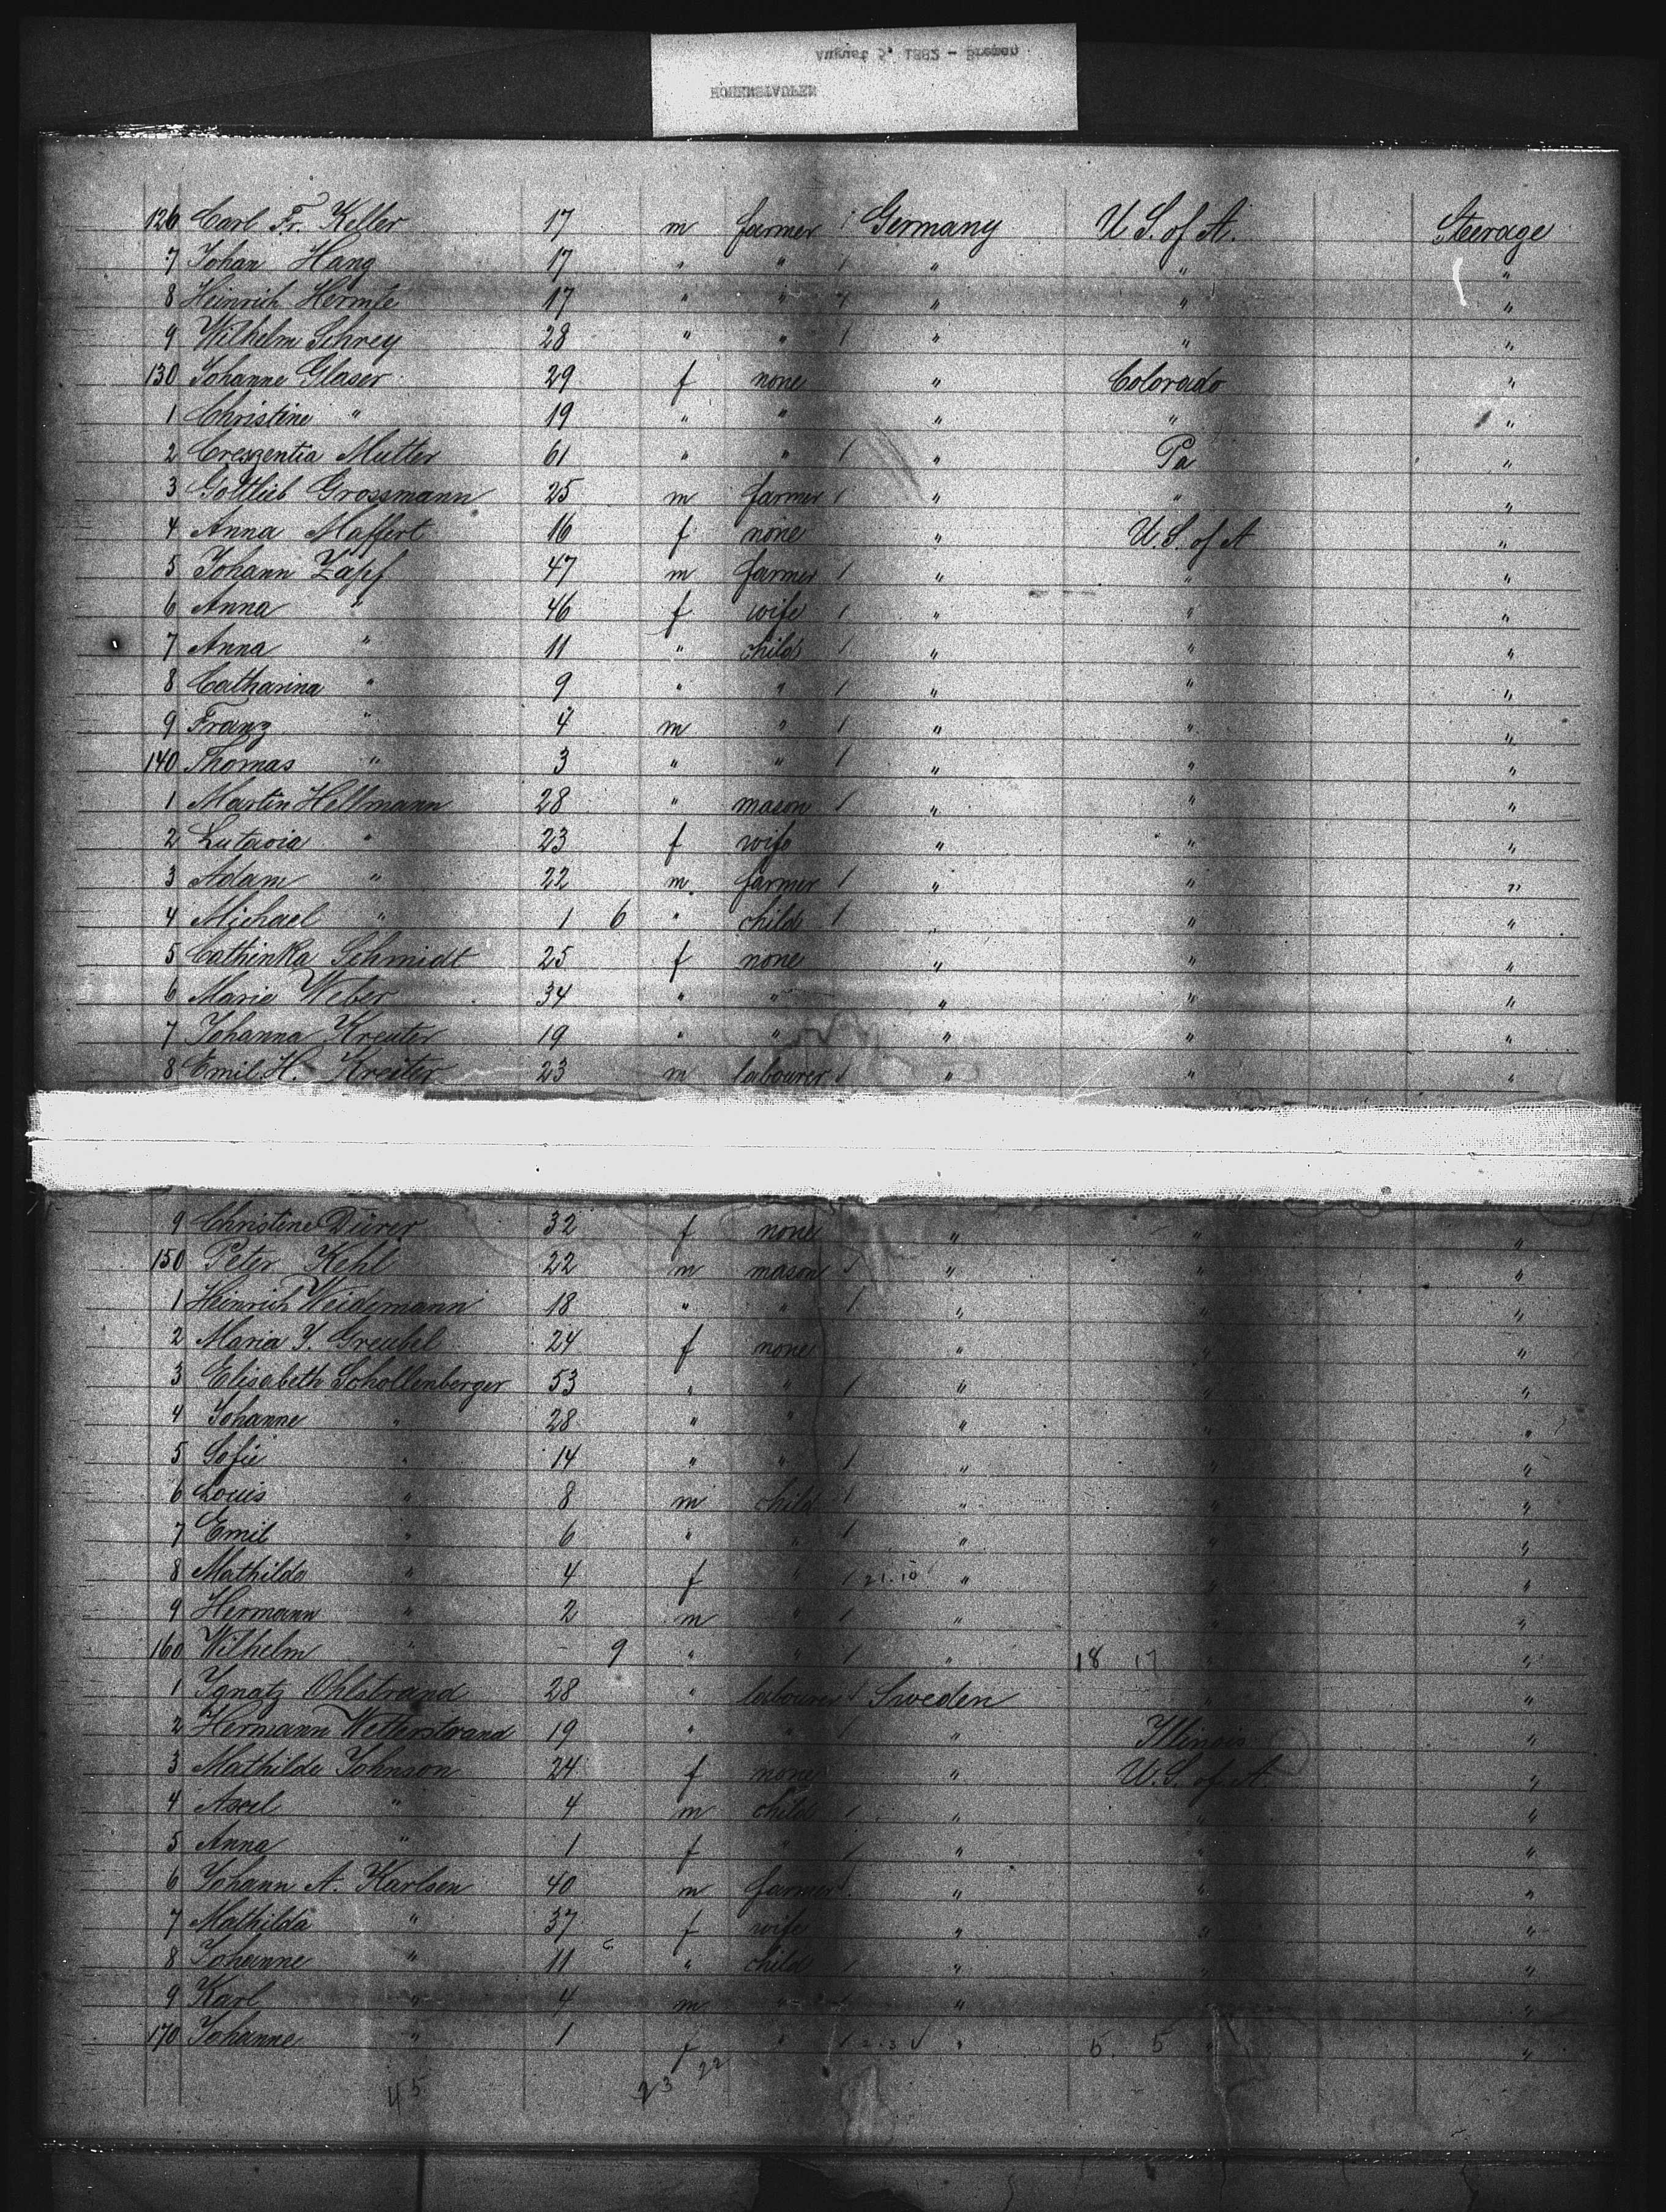 August 5, 1882 - Bremen
HOHENSTAUFEN
126 Carl Fr. Keller 17 m farmer 1 Germany U S. of A. Steerage
7 Johan Hang 17 " " 1 " " "
8 Heinrich Hermle 17 " " 1 " " "
9 Wilhelm Schrey 28 " " 1 " " "
130 Johanne Glaser 29 f none " Colorado "
1 Christine " 19 " " " " "
2 Creszentia Mutter 61 " " 1 " Pa "
3 Gottlieb Grossmann 25 m farmer 1 " " "
4 Anna Maffert 16 f none " U.S. of A "
5 Johann Zapf 47 m farmer 1 " " "
6 Anna " 46 f wife 1 " " "
7 Anna " 11 " child 1 " " "
8 Catharina " 9 " " 1 " " "
9 Franz " 4 m " 1 " " "
140 Thomas " 3 " " 1 " " "
1 Martin Hellmann 28 " mason 1 " " "
2 " 23 f wife " " "
3 Adam " 22 m farmer 1 " " "
4 Michael " 1 6 " child 1 " " "
5 Cathinka Schmidt 25 f none " " "
6 Marie Weber 34 " " " " "
7 Johanna Kreuter 19 " " " " "
8 Emil H. Kreiter 23 m labourer 1 " " "
9 Christine Dürer 32 f none " " "
150 Peter Kehl 22 m mason 1 " " "
1 Heinrich Weidemann 18 " " 1 " " "
2 Maria J. Greubel 24 f none " " "
3 Elisabeth Schollenberger 53 " " 1 " " "
4 Johanne " 28 " " " " "
5 Sofie " 14 " " 1 " " "
6 Louis " 8 m child 1 " " "
7 Emil " 6 " " 1 " " "
8 Mathilde " 4 f " 1 21.10 " " "
9 Hermann " 2 m " 1 " " "
160 Wilhelm " - 9 " " 1 " 18 17 " "
1 Ignatz Ohlstrand 28 " labourer 1 Sweden " "
2 Hermann Wetterstrand 19 " " 1 " Illinois "
3 Mathilde Johnson 24 f none " U.S. of A. "
4 Axel " 4 m child 1 " " "
5 Anna " 1 f " 1 " " "
6 Johann A. Karlsen 40 m farmer 1 " " "
7 Mathilda " 37 f wife " " "
8 Johanne " 11 6 " child 1 " " "
9 Karl " 4 m " 1 " " "
170 Johanne " 1 f " 1 " 5. 5 " "
45 23 22